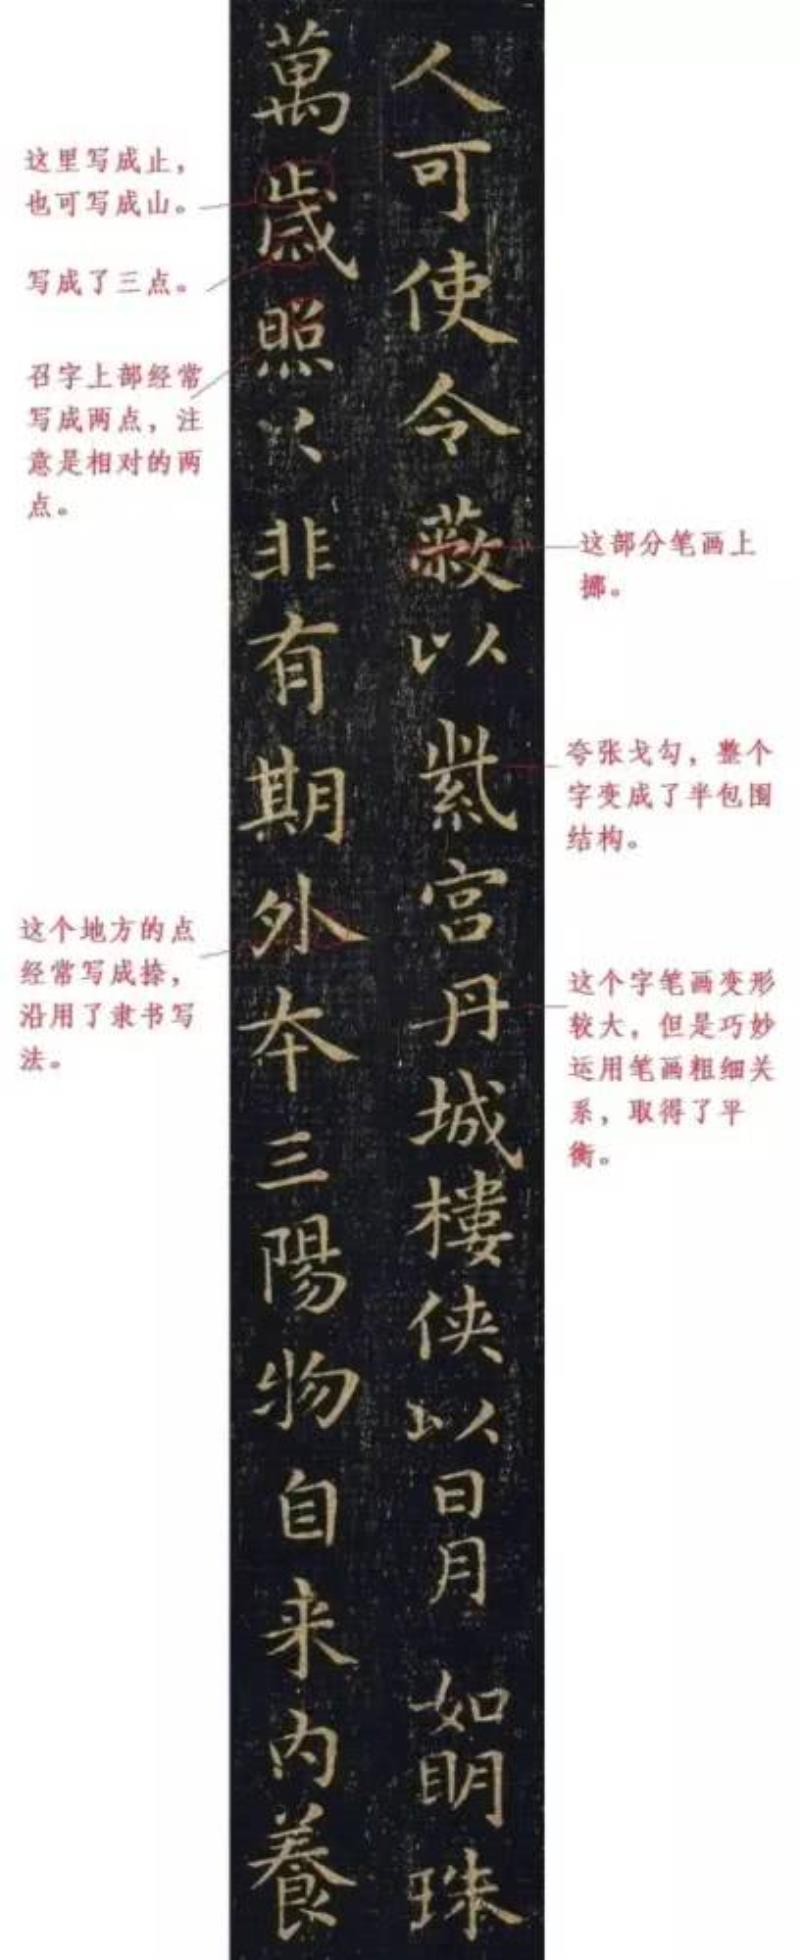 人可使令蔽以紫宫丹城樓侠以日月如明珠
萬歲照以非有期外本三陽物自来内養
这里写成止，
也可写成山。
写成了三点。
召字上部经常
写成两点，注
意是相对的两
点。
这个地方的点
经常写成捺，
沿用了隶书写
法。
这部分笔画上
挪。
夸张戈勾，整个
字变成了半包围
结构。
这个字笔画变形
较大，但是巧妙
运用笔画粗细关
系，取得了平
衡。